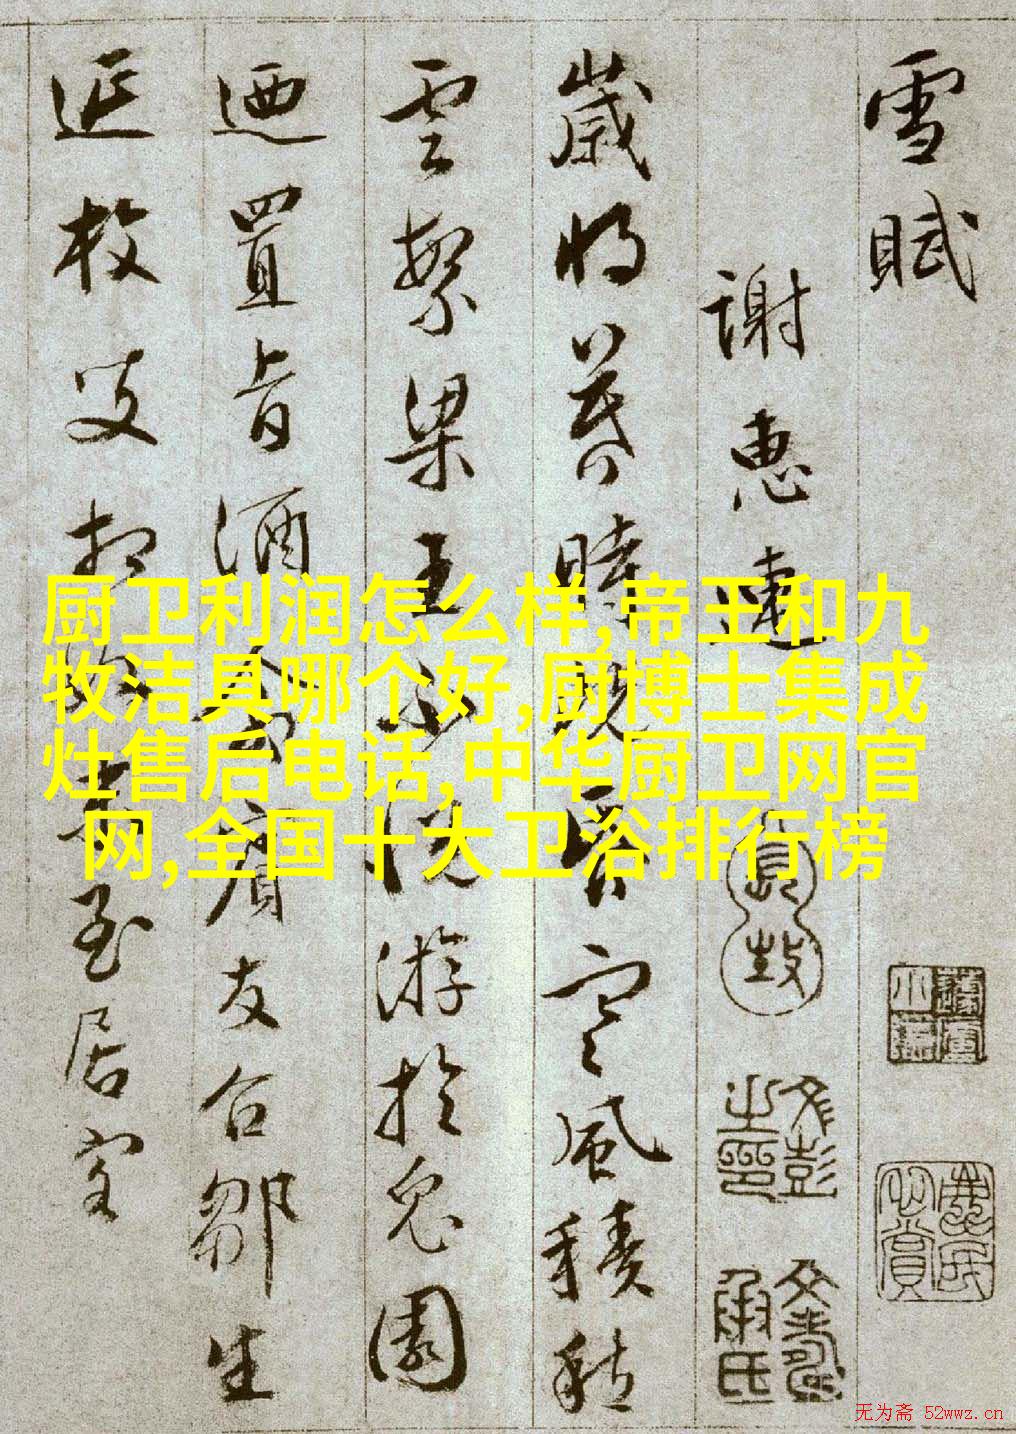 雪賦
謝惠連
歲将暮時既昏寒風積愁
雲繁梁王不悅游於兔園
迺置旨酒命賓友召鄒生
延枚叟相如末至居客
厨卫利润怎么样,帝王和九
牧洁具哪个好,厨博士集成
灶售后电话,中华厨卫网官
网,全国十大卫浴排行榜
文彭之印
文壽承氏
无为斋 52wwz.cn